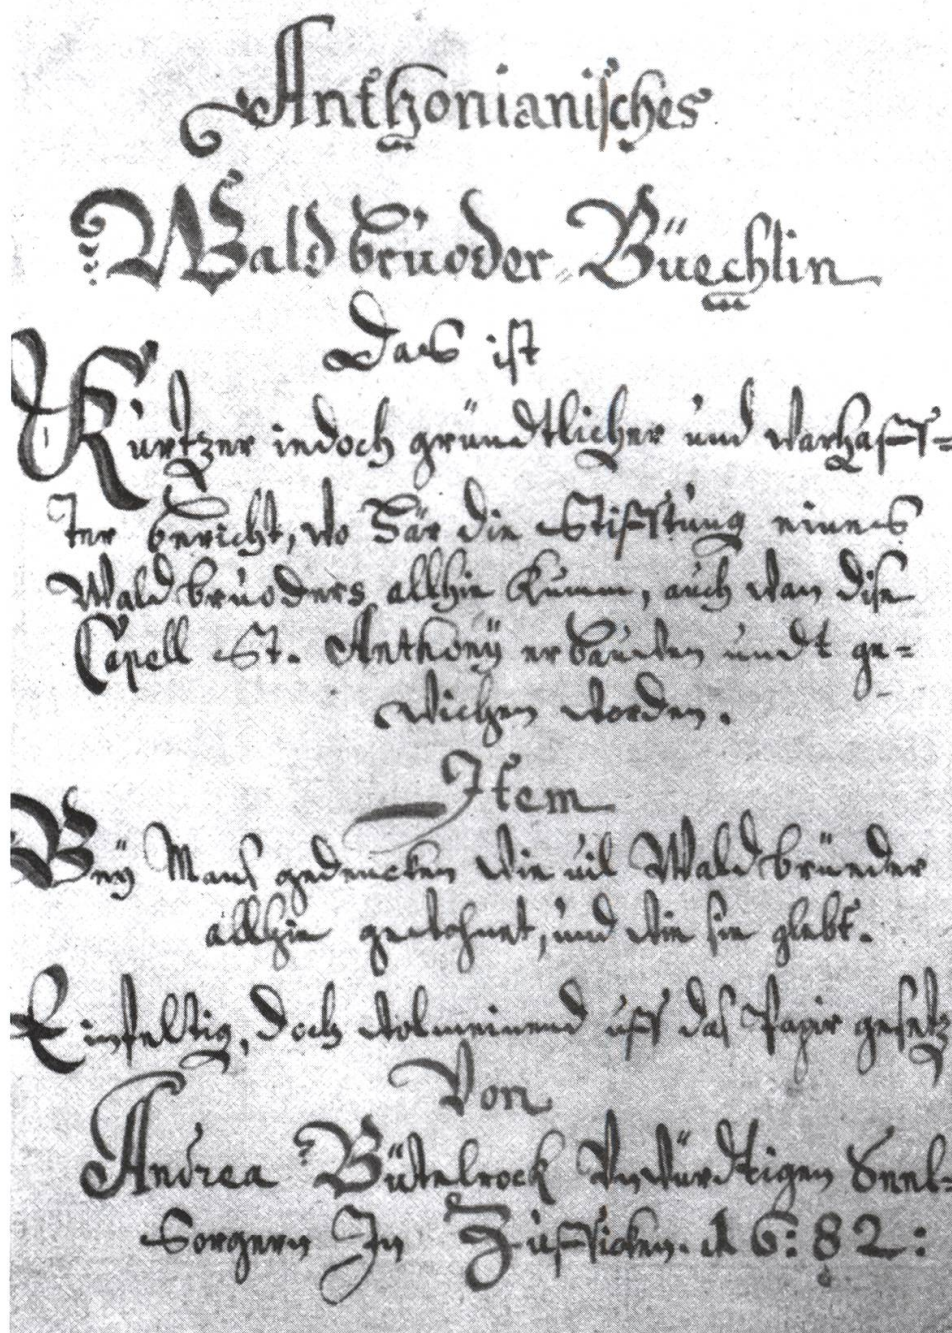 Anthonianisches
Waldbruoder-Büechlin
Das ist
Kurtzer iedoch gründtlicher und warhaffs=
ter bericht, wo här die Stifftung eines
Waldbruoders allhie kumm, auch wan dise
Capell St. Anthonÿ erbauwen undt ge=
wichen worden.
Item
Beÿ Mans gedencken wie vil Waldbrüeder
allhie gewohnet, und wie sie glebt.
Einfeltig, doch wolmeinend uff das Papir gesetz
Von
Andrea Bütelrock Unwürdtigen Seel=
Sorgern In Zufficken. A 6:82: